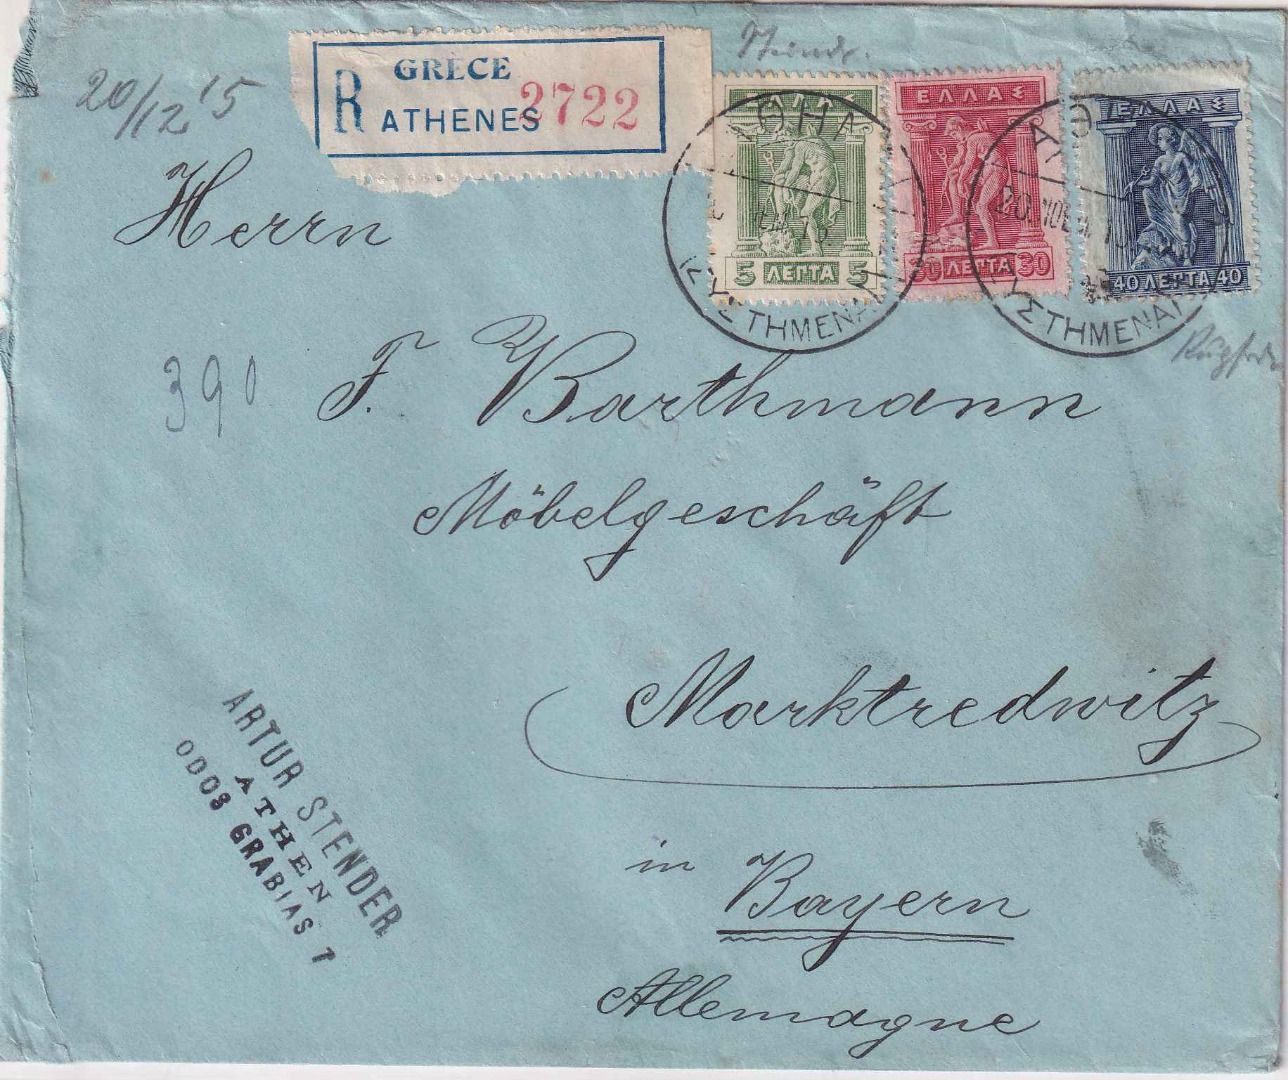 20/12 15
R GRÈCE
ATHENES 2722
ΕΛΛΑΣ
5 ΛΕΠΤΑ 5
ΕΛΛΑΣ
30 ΛΕΠΤΑ 30
ΕΛΛΑΣ
40 ΛΕΠΤΑ 40
ΣΥΣΤΗΜΕΝΑΙ
20
ΣΥΣΤΗΜΕΝΑΙ
Herrn
390
F. Barthmann
Möbelgeschäft
Marktredwitz
in Bayern
Allemagne
ARTUR STENDER
ATHEN
ODOS GRABIAS 1